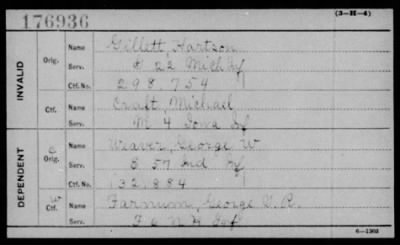 176936
(3-H-4)
INVALID
Orig. Name Gillett, Hartson
Serv. 22 Mich Inf
Ctf. No. 298,754
Ctf. Name Craft, Michael
Serv. M 4 Iowa Inf
DEPENDENT
C Orig. Name Weaver, George W.
Serv. B 57 Ind Inf
Ctf. No. 132,884
W Ctf. Name Farnum, George
Serv. F 6 N H Inf
6-1203